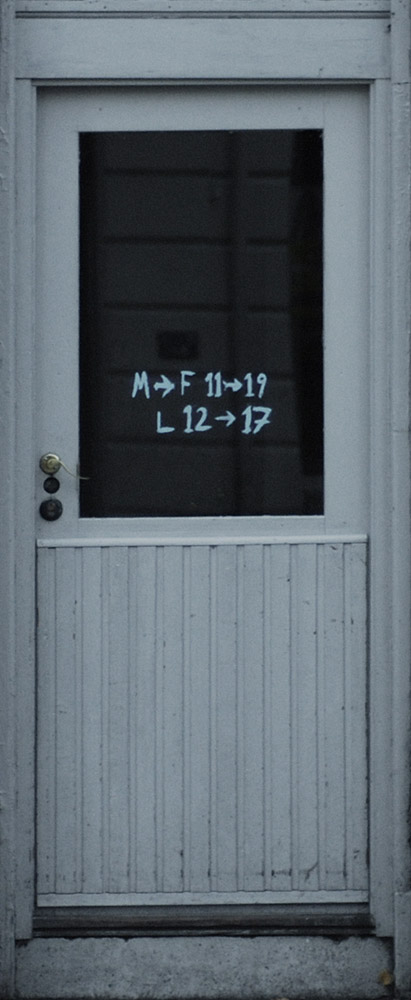 M→F 11→19
L 12→17